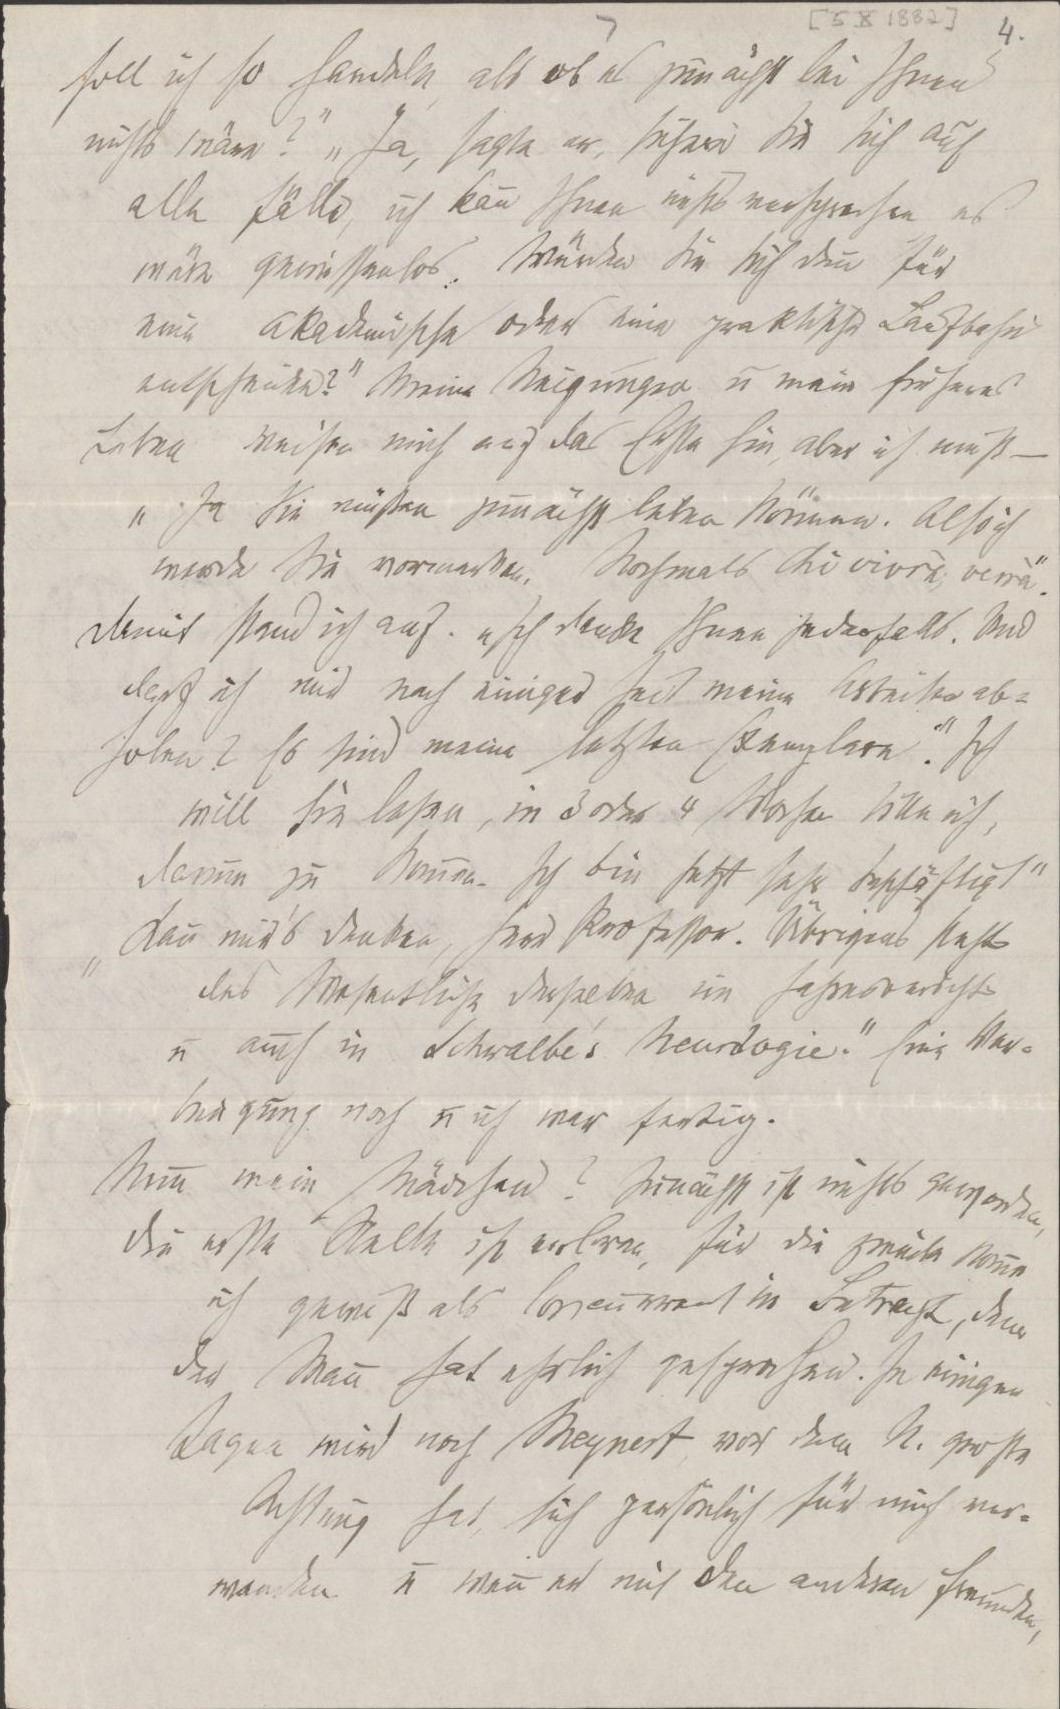 [5 X 1882] 4.
soll ich so handeln, als ob es zunächst bei Ihnen
nichts wäre?" „Ja, sagte er, sichern Sie sich auf
alle Fälle, ich kan̄ Ihnen nichts versprechen es
wäre gewissenlos. Würden Sie sich den̄ für
eine akademische oder eine praktische Laufbahn
entscheiden?" Meine Neigungen u mein früheres
Leben weisen mich auf das Erste hin, aber ich muß —
„Ja Sie müßen zunächst leben kön̄en. Also ich
werde Sie vormerken. Nochmals chi vivrà, verrà".
Damit stand ich auf. „Ich danke Ihnen jedesfalls. Und
darf ich mir nach einiger Zeit meine Arbeiten ab=
holen? Es sind meine letzten Exemplare." „Ich
will sie lesen, in 3 oder 4 Wochen bitte ich,
darum zu kom̄en. Ich bin jetzt sehr beschäftigt"
„Kan̄ mir's denken, Herr Professor. Übrigens steht
das Wesentliche derselben im Jahresbericht
u auch in Schwalbe's Neurologie." Eine Ver=
beugung noch u ich war fertig.
Nun mein Mädchen? Zunächst ist nichts geworden,
die erste Stelle ist verloren, für die zweite kom̄e
ich gewiß als Concurrent in Betracht, denn
der Man̄ hat ehrlich gesprochen. In einigen
Tagen wird noch Meynert, vor dem N. große
Achtung hat, sich persönlich für mich ver=
wenden u wen̄ er mit den anderen Freunden,